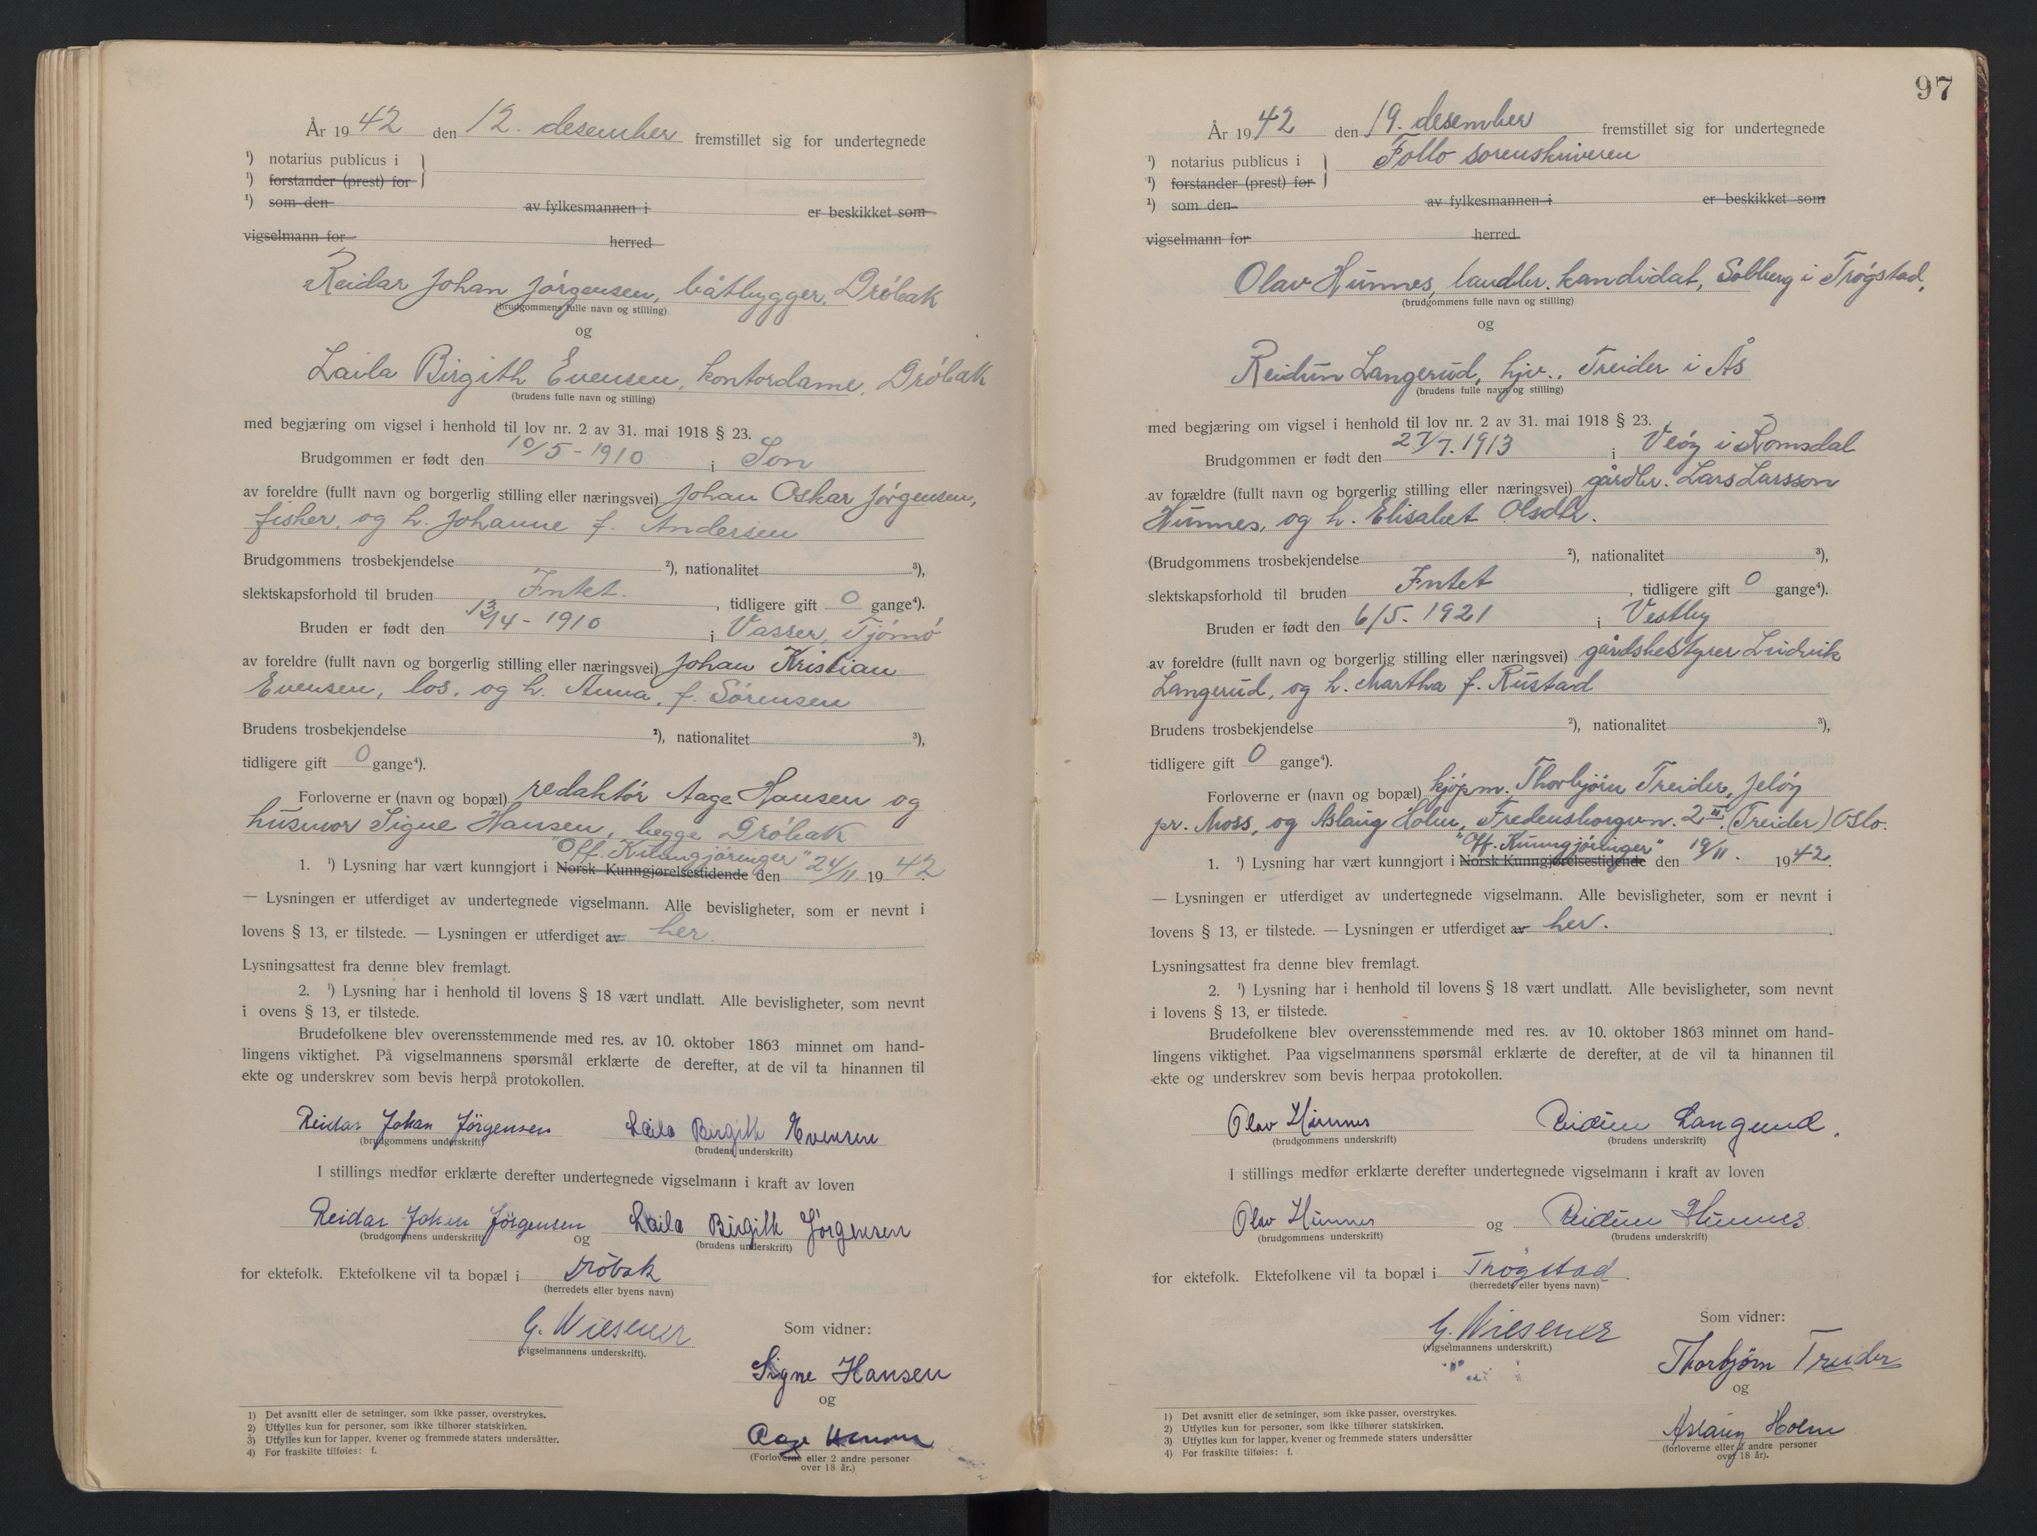 År 1942 den 12. desember fremstillet sig for undertegnede
¹) notarius publicus i
¹) forstander (prest) for
¹) som den av fylkesmannen i er beskikket som
vigselmann for herred
Reidar Johan Jørgensen, båtbygger, Drøbak
(brudgommens fulle navn og stilling)
og
Laila Birgith Evensen, kontordame, Drøbak
(brudens fulle navn og stilling)
med begjæring om vigsel i henhold til lov nr. 2 av 31. mai 1918 § 23.
Brudgommen er født den 10/5 - 1910 i Son
av foreldre (fullt navn og borgerlig stilling eller næringsvei) Johan Oskar Jørgensen,
fisher, og h. Johanne f. Andersen
Brudgommens trosbekjendelse ²), nationalitet ³),
slektskapsforhold til bruden Intet. , tidligere gift 0 gange⁴).
Bruden er født den 13/4 - 1910 i Vasser, Tjømø
av foreldre (fullt navn og borgerlig stilling eller næringsvei) Johan Kristian
Evensen, los, og h. Anna, f. Sørensen
Brudens trosbekjendelse ²), nationalitet ³),
tidligere gift 0 gange⁴).
Forloverne er (navn og bopæl) redaktør Aage Hansen og
husmor Signe Hansen, begge Drøbak
"Off. Kunngjøringer"
1. ¹) Lysning har vært kunngjort i Norsk Kunngjørelsestidende den 24/11 1942.
— Lysningen er utferdiget av undertegnede vigselmann. Alle bevisligheter, som er nevnt i
lovens § 13, er tilstede. — Lysningen er utferdiget av her.
Lysningsattest fra denne blev fremlagt.
2. ¹) Lysning har i henhold til lovens § 18 vært undlatt. Alle bevisligheter, som nevnt
i ovens § 13, er tilstede.
Brudefolkene blev overensstemmende med res. av 10. oktober 1863 minnet om hand-
lingens viktighet. På vigselmannens spørsmål erklærte de derefter, at de vil ta hinannen til
ekte og underskrev som bevis herpå protokollen.
Reidar Johan Jørgensen Laila Birgith Evensen
(brudgommens underskrift) (brudens underskrift)
I stillings medfør erklærte derefter undertegnede vigselmann i kraft av loven
Reidar Johan Jørgensen og Laila Birgith Jørgensen
(brudgommens underskrift) (brudens underskrift)
for ektefolk. Ektefolkene vil ta bopæl i Drøbak
(herredets eller byens navn)
G. Wiesener
(vigselmannens underskrift).
Som vidner:
Signe Hansen
og
Aage Hansen
(Forloverne eller 2 andre personer
over 18 år.)
1) Det avsnitt eller de setninger, som ikke passer, overstrykes.
2) Utfylles kun for personer, som ikke tilhører statskirken.
3) Utfylles kun for lapper, kvener og fremmede staters undersåtter.
4) For fraskilte tilføies: f.
97
År 1942 den 19. desember fremstillet sig for undertegnede
¹) notarius publicus i Follo sorenskriveren
¹) forstander (prest) for
¹) som den av fylkesmannen i er beskikket som
vigselmann for herred
Olav Hunnes, landbr. kandidat, Solberg i Trøgstad,
(brudgommens fulle navn og stilling)
og
Reidun Langerud, hjv., Treider i Ås
(brudens fulle navn og stilling)
med begjæring om vigsel i henhold til lov nr. 2 av 31. mai 1918 § 23.
Brudgommen er født den 27/7. 1913 i Veøy i Romsdal
av forældre (fullt navn og borgerlig stilling eller næringsvei) gårdbr. Lars Larsson
Hunnes, og h. Elisabet Olsdtr.
(Brudgommens trosbekjendelse ²), nationalitet ³),
slektskapsforhold til bruden Intet , tidligere gift 0 gange⁴).
Bruden er født den 6/5. 1921 i Vestby
av foreldre (fullt navn og borgerlig stilling eller næringsvei) gårdsbestyrer Ludvik
Langerud, og h. Martha f. Rustad
Brudens trosbekjendelse ²), nationalitet ³),
tidligere gift 0 gange⁴).
Forloverne er (navn og bopæl) kjøpm. Thorbjørn Treider, Jeløy
pr. Moss, og Aslaug Holm, Fredensborgvn. 2 (Treider) Oslo.
"Off. Kunngjøringer"
1. ¹) Lysning har vært kunngjort i Norsk Kunngjørelsestidende den 19/11. 1942.
— Lysningen er utferdiget av undertegnede vigselmann. Alle bevisligheter, som er nevnt i
lovens § 13, er tilstede. — Lysningen er utferdiget av her.
Lysningsattest fra denne blev fremlagt.
2. ¹) Lysning har i henhold til lovens § 18 vært undlatt. Alle bevisligheter, som nevnt
i lovens § 13, er tilstede.
Brudefolkene blev overensstemmende med res. av 10. oktober 1863 minnet om hand-
lingens viktighet. Paa vigselmannens spørsmål erklærte de derefter, at de vil ta hinannen til
ekte og underskrev som bevis herpaa protokollen.
Olav Hunnes Reidun Langerud.
(brudgommens underskrift) (brudens underskrift)
I stillings medfør erklærte derefter undertegnede vigselmann i kraft av loven
Olav Hunnes og Reidun Hunnes.
(brudgommens underskrift) (brudens underskrift)
for ektefolk. Ektefolkene vil ta bopæl i Trøgstad.
(herredets eller byens navn)
G. Wiesener
(vigselmannens underskrift.)
Som vidner:
Thorbjørn Treider
og
Aslaug Holm
(forloverne eller 2 andre personer
over 18 år).
1) Det avsnitt eller de setninger, som ikke passer, overstrykes.
2) Utfylles kun for personer, som ikke tilhører statskirken.
3) Utfylles kun for lapper, kvener og fremmede staters undersåtter
4) For fraskilte tilføies: f.